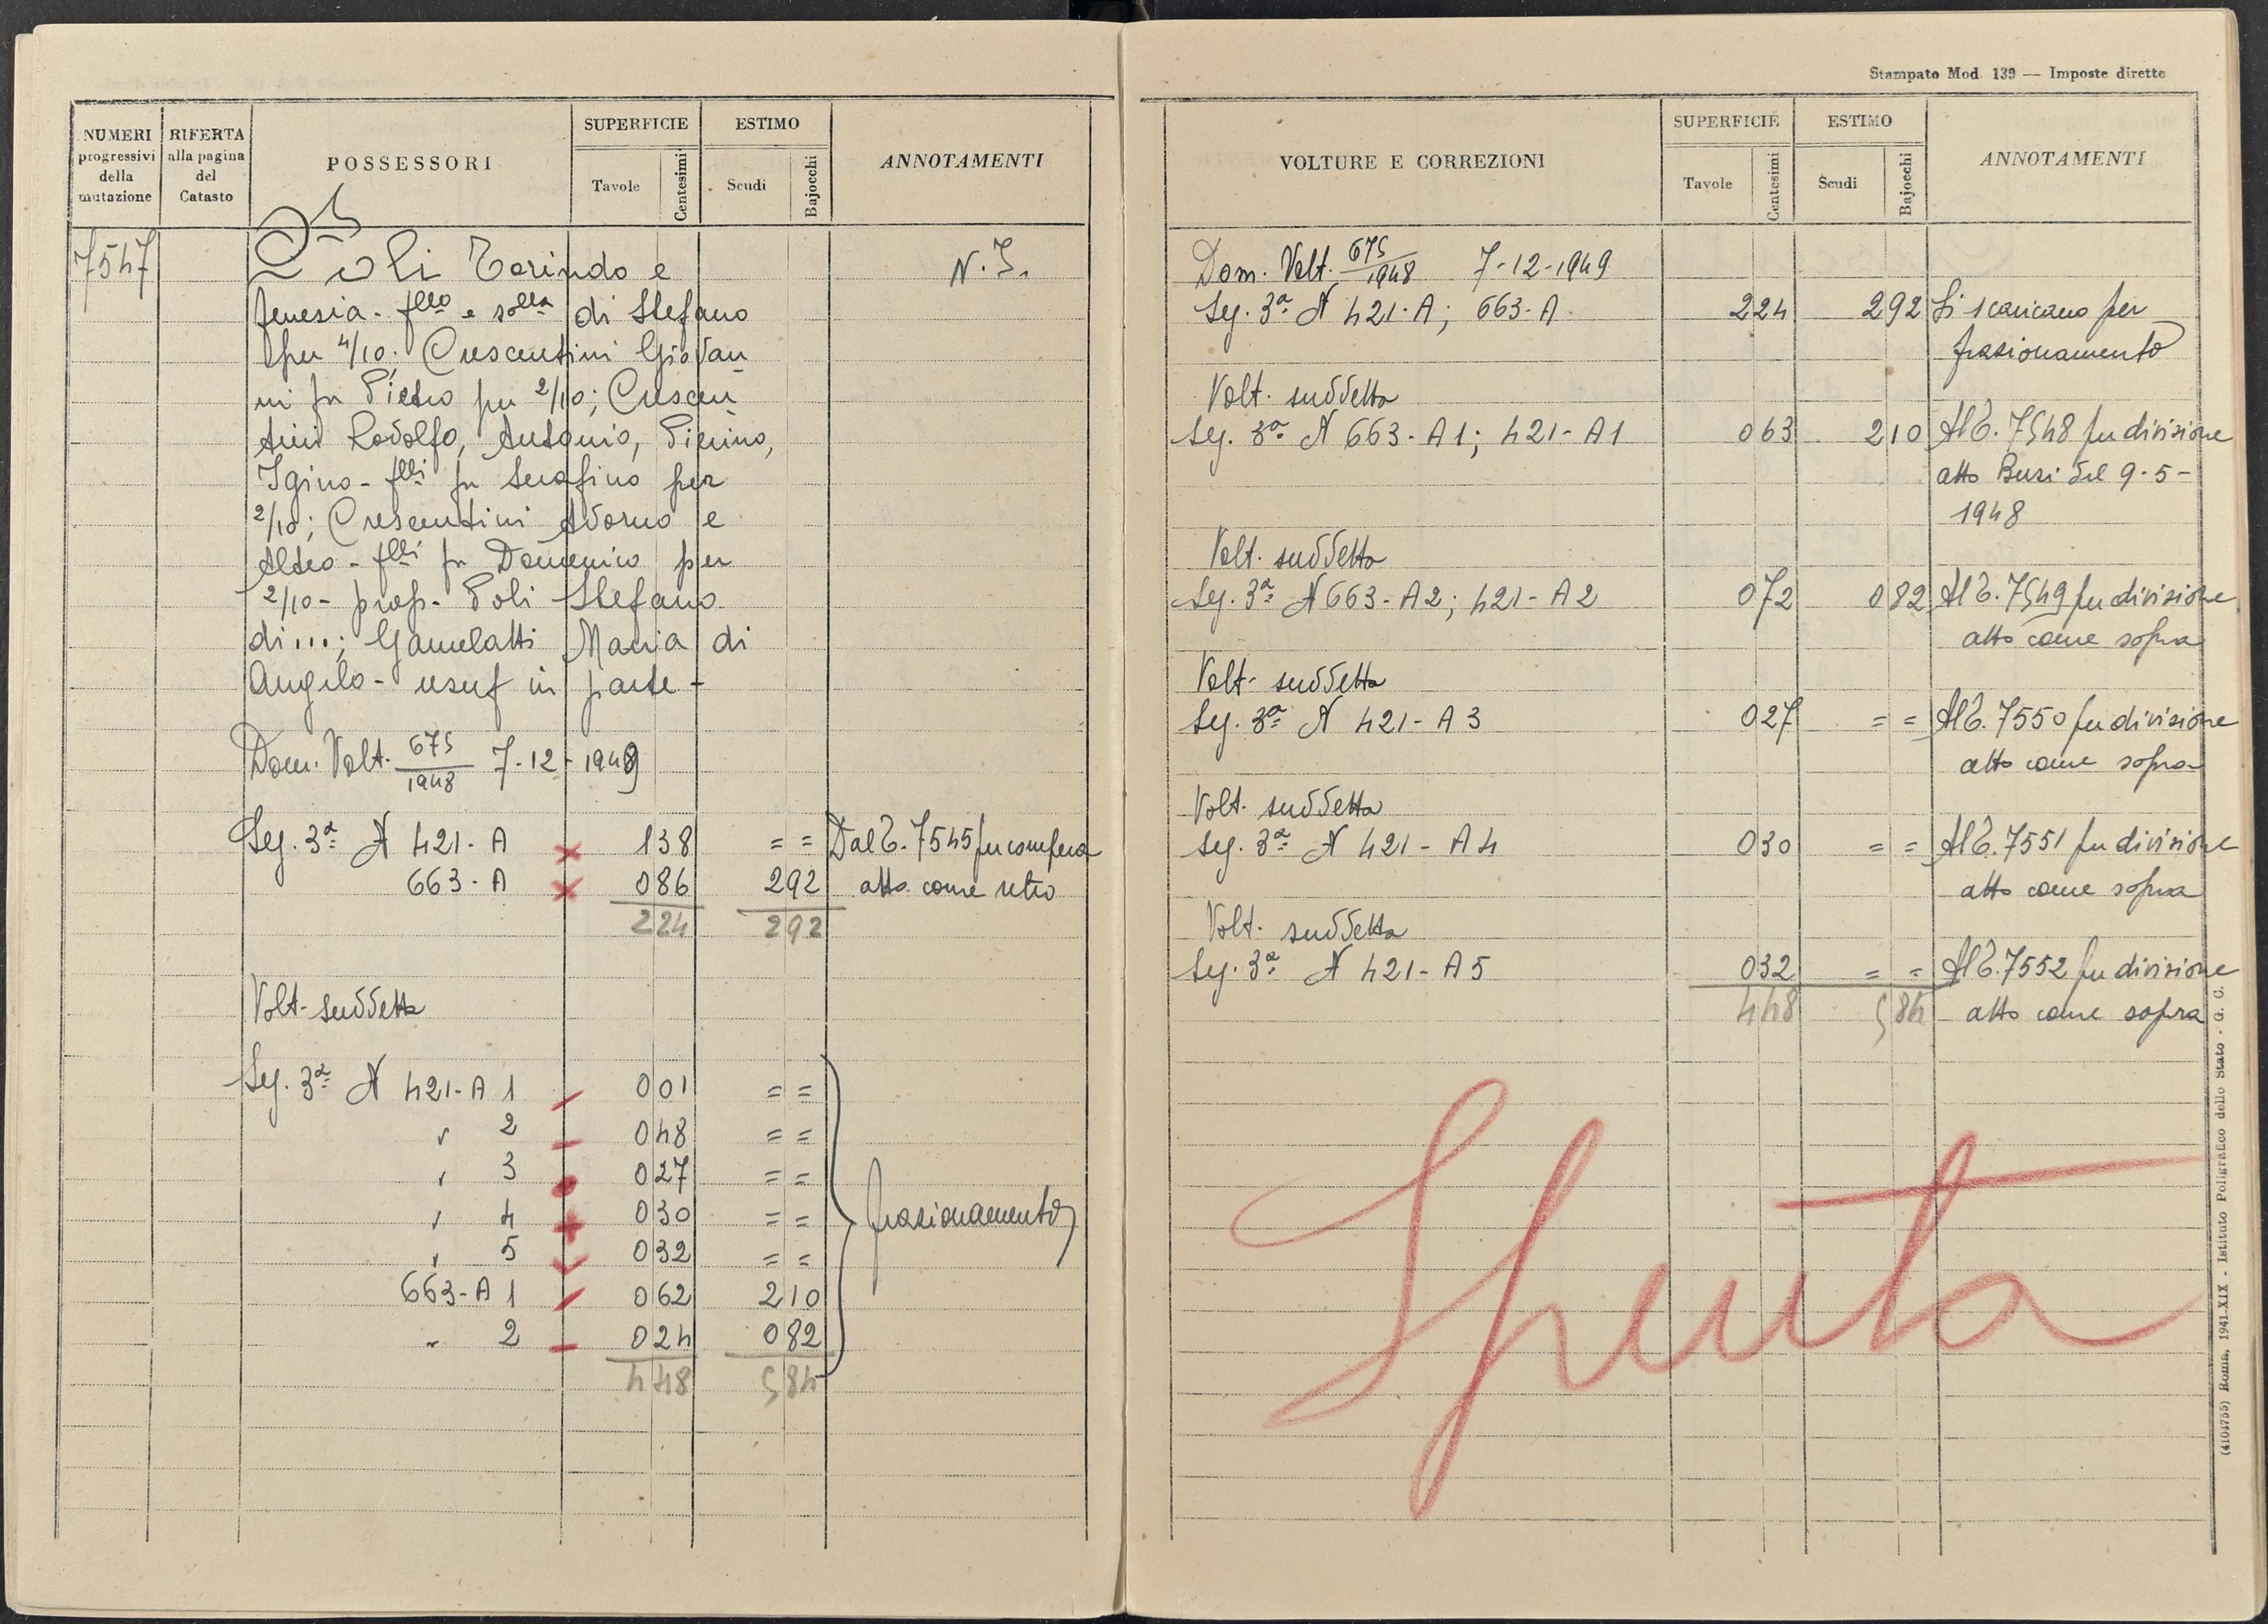 NUMERI progressivi della mutazione
RIFERTA alla pagina del Catasto
POSSESSORI
SUPERFICIE
Tavole
Centesimi
ESTIMO
Scudi
Bajocchi
ANNOTAMENTI
7547
Poli Torindo e
N. I.
Senesia - fllo e solla di Stefano
per 4/10; Crescentini Giovan-
ni fu Pietro per 2/10; Crescen-
tini Rodolfo, Antonio, Pierino,
Igino - flli fu Serafino per
2/10; Crescentini Adorno e
Aldeo - flli fu Domenico per
2/10 - prop. Poli Stefano
di ...; Gamelatti Maria di
Angelo - usuf in parte -
Dom. Volt. 675/1948 7-12-1949
Seg. 3ª N 421-A 138 = = Dal T. 7545 per compera
663-A 086 292 atto come retro
224 292
Volt. suddetta
Seg. 3ª N 421-A 1 001 = =
" 2 048 = =
" 3 027 = =
" 4 030 = =
" 5 032 = =
frazionamento
663-A 1 062 210
" 2 024 082
448 584
Stampato Mod. 139 — Imposte dirette
VOLTURE E CORREZIONI
SUPERFICIE
Tavole
Centesimi
ESTIMO
Scudi
Bajocchi
ANNOTAMENTI
Dom. Volt. 675/1948 7-12-1949
Seg. 3ª N 421-A; 663-A 224 292 Si scaricano per
frazionamento
Volt. suddetta
Seg. 3ª N 663-A1; 421-A1 063 210 Al T. 7548 per divisione
atto Busi del 9-5-
1948
Volt. suddetta
Seg. 3ª N 663-A2; 421-A2 072 082 Al T. 7549 per divisione
atto come sopra
Volt. suddetta
Seg. 3ª N 421-A3 027 = = Al T. 7550 per divisione
atto come sopra
Volt. suddetta
Seg. 3ª N 421-A4 030 = = Al T. 7551 per divisione
atto come sopra
Volt. suddetta
Seg. 3ª N 421-A5 032 = = Al T. 7552 per divisione
448 584 atto come sopra
Spenta
(4104755) Roma, 1941-XIX - Istituto Poligrafico dello Stato - G. C.